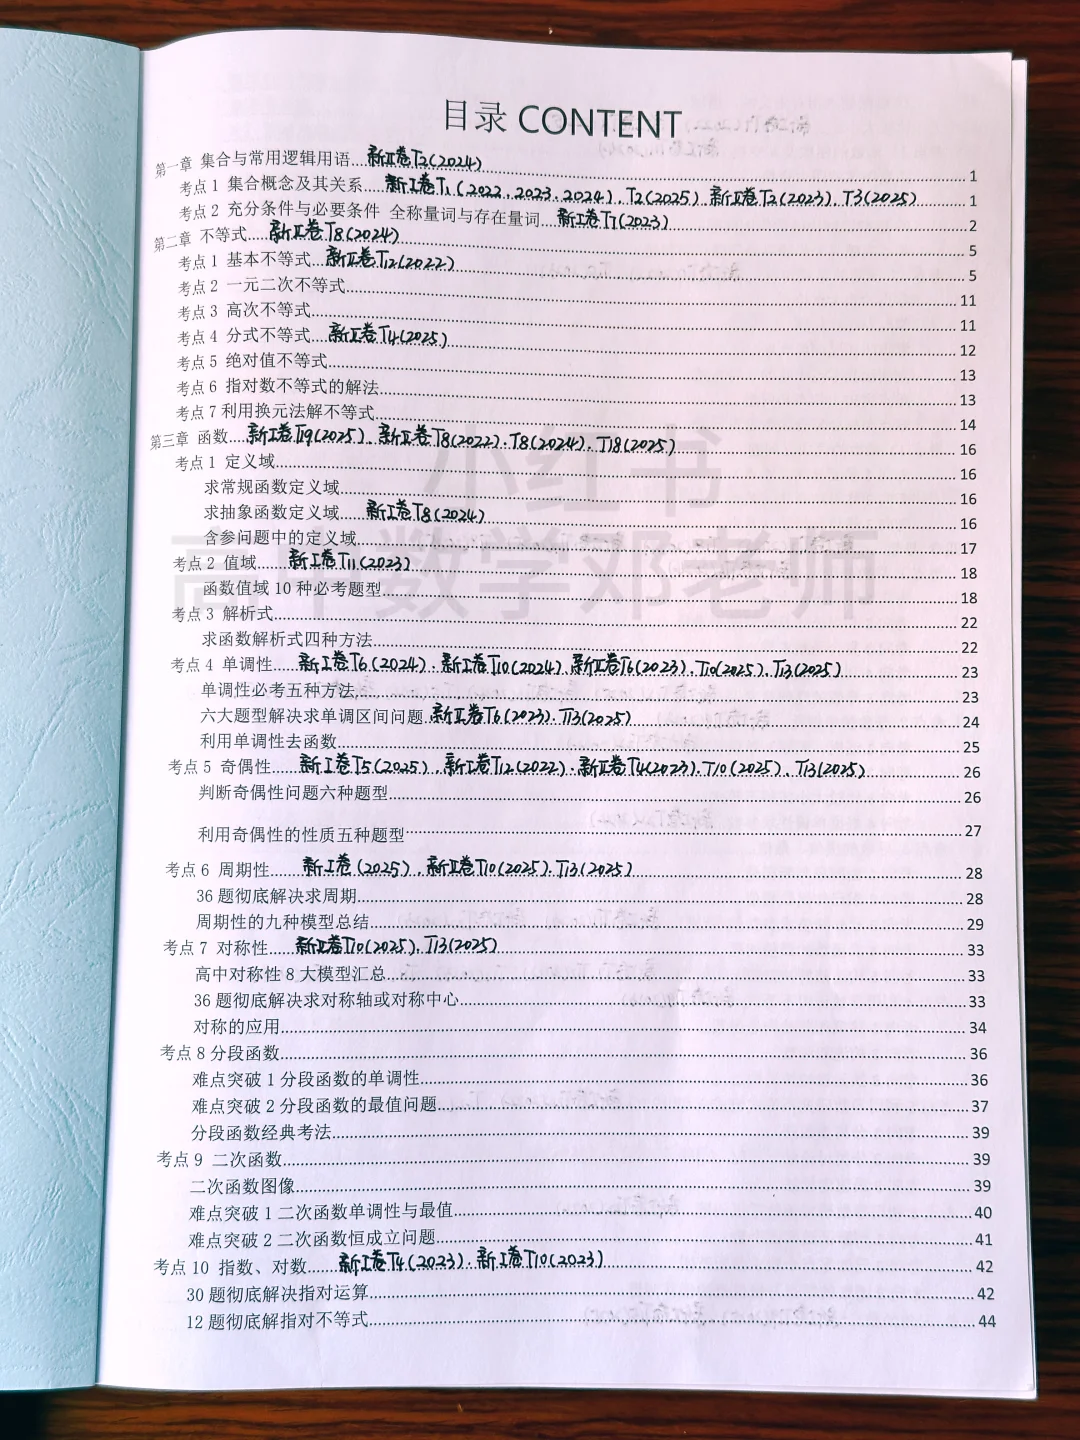 目录 CONTENT
第一章 集合与常用逻辑用语...新Ⅱ卷T2(2024)...1
考点 1 集合概念及其关系...新Ⅰ卷T1(2022、2023、2024)、T2(2025) 新Ⅱ卷T2(2023)、T3(2025)...1
考点 2 充分条件与必要条件 全称量词与存在量词...新Ⅰ卷T7(2023)...2
第二章 不等式...新Ⅱ卷T8(2024)...5
考点 1 基本不等式...新Ⅱ卷T12(2022)...5
考点 2 一元二次不等式...11
考点 3 高次不等式...11
考点 4 分式不等式...新Ⅱ卷T4(2025)...12
考点 5 绝对值不等式...13
考点 6 指对数不等式的解法...13
考点 7 利用换元法解不等式...14
第三章 函数...新Ⅰ卷T19(2025)、新Ⅱ卷T8(2022)、T8(2024)、T18(2025)...16
考点 1 定义域...16
求常规函数定义域...16
求抽象函数定义域...新Ⅰ卷T8(2024)...16
含参问题中的定义域...17
考点 2 值域...新Ⅰ卷T11(2023)...18
函数值域 10 种必考题型...18
考点 3 解析式...22
求函数解析式四种方法...22
考点 4 单调性...新Ⅰ卷T6(2024)、新Ⅰ卷T10(2024)、新Ⅱ卷T6(2023)、T10(2025)、T13(2025)...23
单调性必考五种方法...23
六大题型解决求单调区间问题 新Ⅱ卷T6(2023)、T13(2025)...24
利用单调性去函数...25
考点 5 奇偶性...新Ⅰ卷T5(2025)、新Ⅰ卷T12(2022)、新Ⅱ卷T4(2023)、T10(2025)、T13(2025)...26
判断奇偶性问题六种题型...26
利用奇偶性的性质五种题型...27
考点 6 周期性...新Ⅰ卷(2025)、新Ⅱ卷T10(2025)、T13(2025)...28
36 题彻底解决求周期...28
周期性的九种模型总结...29
考点 7 对称性...新Ⅱ卷T10(2025)、T13(2025)...33
高中对称性 8 大模型汇总...33
36 题彻底解决求对称轴或对称中心...33
对称的应用...34
考点 8 分段函数...36
难点突破 1 分段函数的单调性...36
难点突破 2 分段函数的最值问题...37
分段函数经典考法...39
考点 9 二次函数...39
二次函数图像...39
难点突破 1 二次函数单调性与最值...40
难点突破 2 二次函数恒成立问题...41
考点 10 指数、对数...新Ⅰ卷T4(2023)、新Ⅰ卷T10(2023)...42
30 题彻底解决指对运算...42
12 题彻底解指对不等式...44
小红书
高中数学邓老师